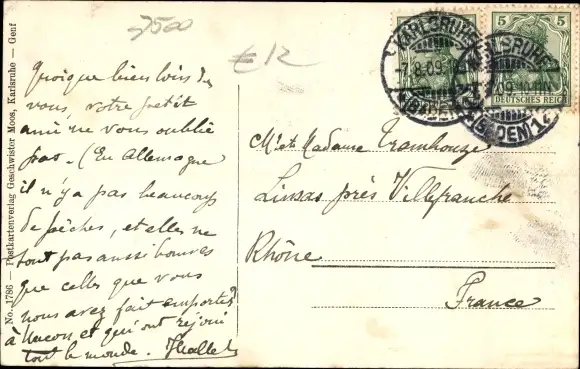 7500
€ 12
No. 1786 — Postkartenverlag Geschwister Moos, Karlsruhe — Genf
Quoique bien loin de
vous votre petit
ami ne vous oublie
pas – (En Allemagne
il n'y a pas beaucoup
de pêches, et elles ne
sont pas aussi bonnes
que celles que vous
nous avez fait emporter
à Macon et qui ont réjoui
tout le monde.
KARLSRUHE
-7.8.09
(BADEN)
KARLSRUHE
09.10-11N
(BADEN) 1
5 5
DEUTSCHES REICH
Mr et Madame Tramhouze
Limas près Villefranche
Rhône
France